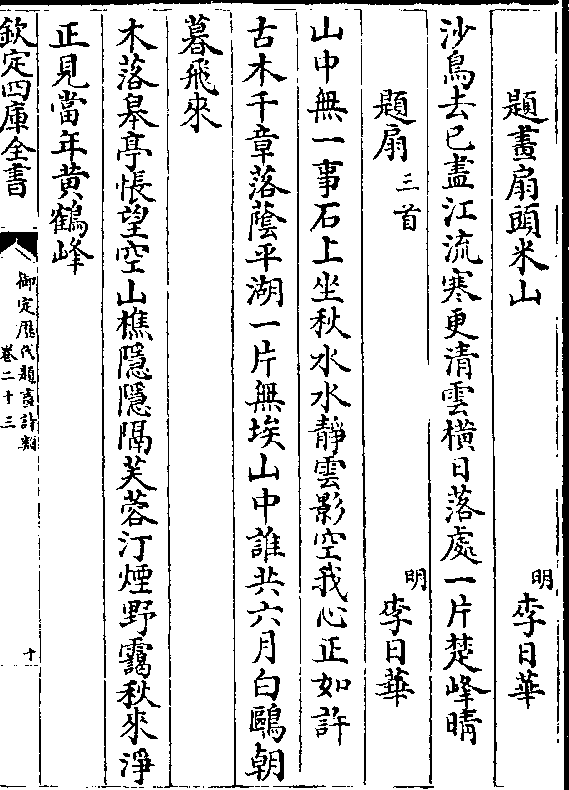 題畫扇頭米山 明 李日華
沙鳥去已盡江流寒更清雲橫日落處一片楚峰晴
題扇 三首 明 李日華
山中無一事石上坐秋水水靜雲影空我心正如許
古木千章落蔭平湖一片無埃山中誰共六月白鷗朝
暮飛來
木落皋亭悵望空山樵隱隱隔芙蓉汀煙野靄秋來淨
正見當年黄鶴峰
欽定四庫全書
御定歷代題畫詩類
卷二十三
十